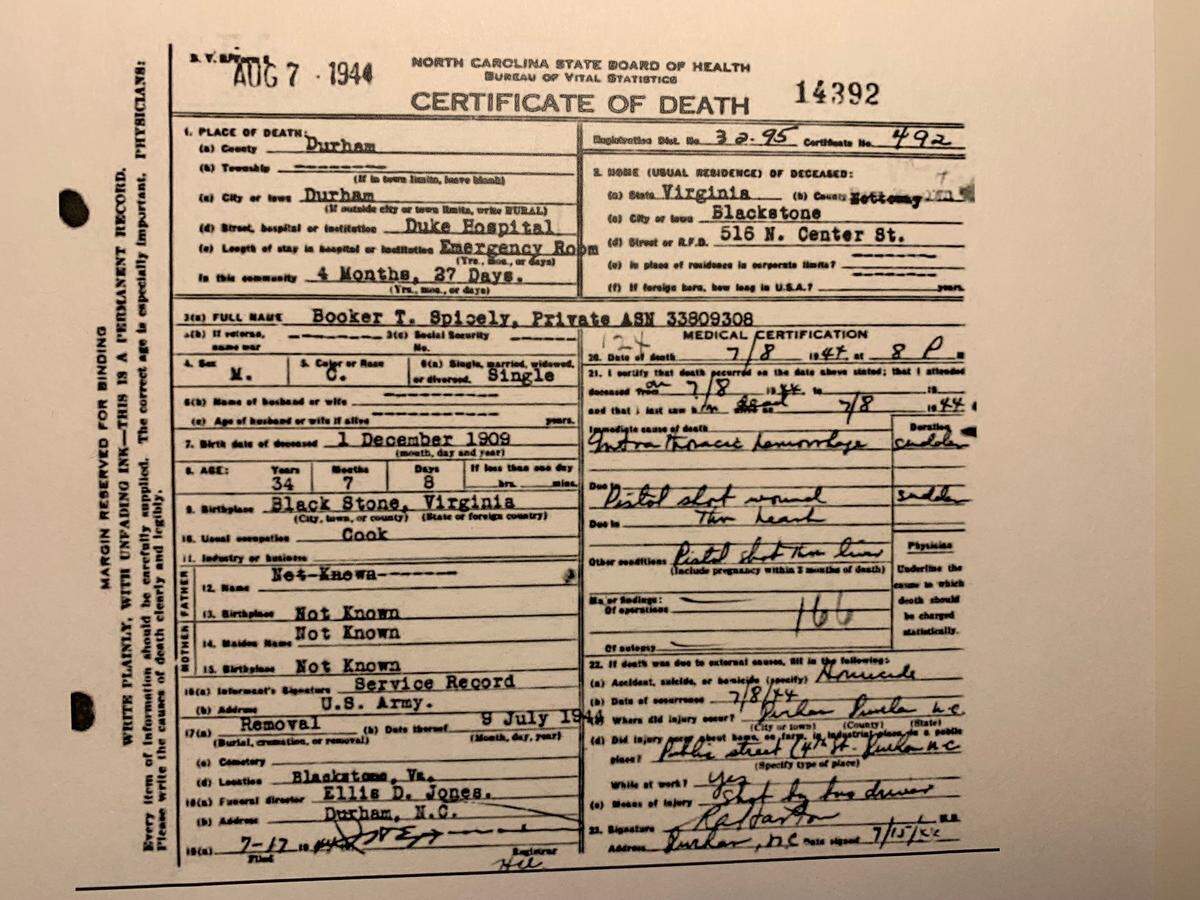 AUG 7 - 1944
NORTH CAROLINA STATE BOARD OF HEALTH
BUREAU OF VITAL STATISTICS
CERTIFICATE OF DEATH
14392
MARGIN RESERVED FOR BINDING
WRITE PLAINLY, WITH UNFADING INK—THIS IS A PERMANENT RECORD.
Every item of information should be carefully supplied. The correct age is especially important. PHYSICIANS:
Please write the causes of death clearly and legibly.
1. PLACE OF DEATH:
(a) County Durham
(b) Township --------
(If in town limits, leave blank)
(c) City or town Durham
(If outside city or town limits, write RURAL)
(d) Street, hospital or institution Duke Hospital
(e) Length of stay in hospital or institution Emergency Room
(Yrs., mos., or days)
In this community 4 Months, 27 Days.
(Yrs., mos., or days)
Registration Dist. No. 32-95 Certificate No. 492
2. HOME (USUAL RESIDENCE) OF DECEASED:
(a) State Virginia (b) County Nottoway
(c) City or town Blackstone
(d) Street or R.F.D. 516 N. Center St.
(e) Is place of residence in corporate limits? --------
(f) If foreign born, how long in U.S.A.? -------- years.
3(a) FULL NAME Booker T. Spicely, Private ASN 33809308
3(b) If veteran, name war -------- 3(c) Social Security No. --------
4. Sex M.
5. Color or Race C.
6(a) Single, married, widowed, or divorced. Single
6(b) Name of husband or wife --------
(c) Age of husband or wife if alive -------- years.
7. Birth date of deceased 1 December 1909
(month, day and year)
8. AGE: Years 34 Months 7 Days 8 If less than one day hrs. mins.
9. Birthplace Black Stone, Virginia
(City, town, or county) (State or foreign country)
10. Usual occupation Cook
11. Industry or business
FATHER
12. Name Not Known-------
13. Birthplace Not Known
MOTHER
14. Maiden Name Not Known
15. Birthplace Not Known
16(a) Informant's Signature Service Record
(b) Address U.S. Army.
17(a) Removal (b) Date thereof 9 July 1944
(Burial, cremation, or removal) (Month, day, year)
(c) Cemetery
(d) Location Blackstone, Va.
18(a) Funeral director Ellis D. Jones.
(b) Address Durham, N.C.
19(a) 7-17 1944
Filed Registrar
MEDICAL CERTIFICATION
124
20. Date of death 7/8 1944 at 8 P m
21. I certify that death occurred on the date above stated; that I attended
deceased from on 7/8 1944 to 19
and that I last saw him dead 7/8 1944
Immediate cause of death Duration
Intra thoracic hemorrhage sudden
Due to Pistol shot wound sudden
Due to Thru heart
Other conditions Pistol shot thru liver
(Include pregnancy within 3 months of death)
Major findings:
Of operations
166
Of autopsy
Physician
Underline the cause to which death should be charged statistically.
22. If death was due to external causes, fill in the following:
(a) Accident, suicide, or homicide (specify) Homicide
(b) Date of occurrence 7/8/44
(c) Where did injury occur? Durham Durham N.C.
(City or town) (County) (State)
(d) Did injury occur about home, on farm, in industrial place, in public
place? Public street (4th St. Durham N.C
(Specify type of place)
While at work? Yes
(e) Means of injury Shot by bus driver
23. Signature M.D.
Address Durham, NC Date signed 7/15/44